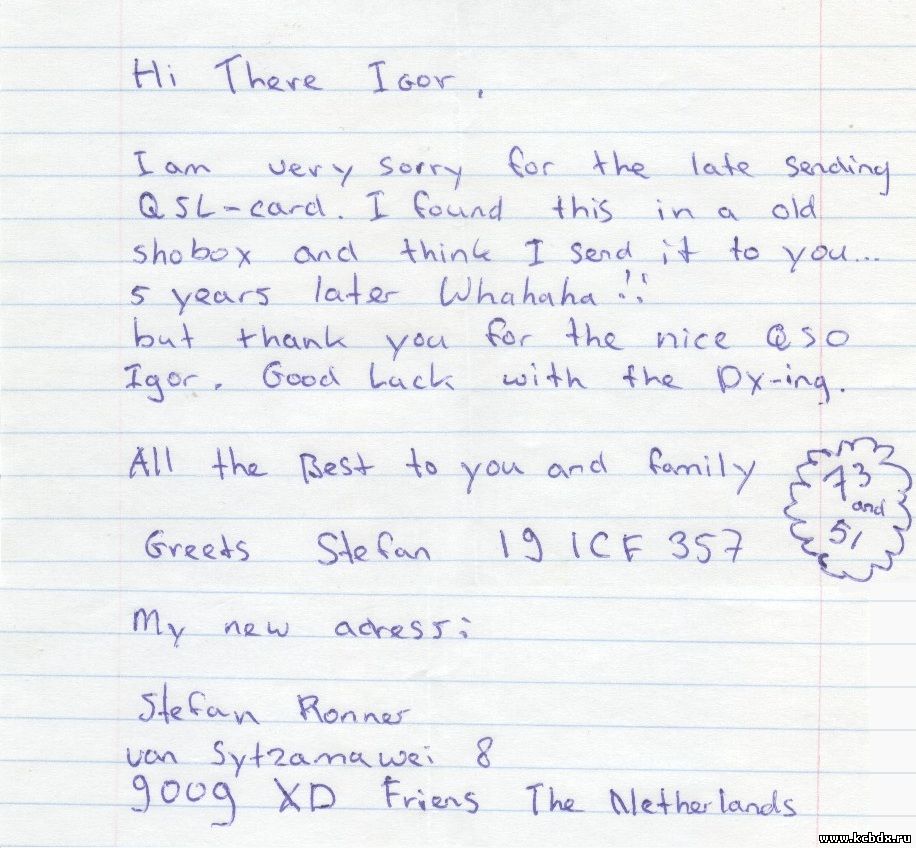 Hi There Igor,
I am very sorry for the late sending
QSL-card. I found this in a old
shobox and think I send it to you...
5 years later Whahaha!!
but thank you for the nice QSO
Igor. Good Luck with the Dx-ing.
All the Best to you and family
73
and
51
Greets Stefan 19 ICF 357
My new adress:
Stefan Ronner
van Sytzamawei 8
9009 XD Friens The Netherlands
www.kcbdx.ru